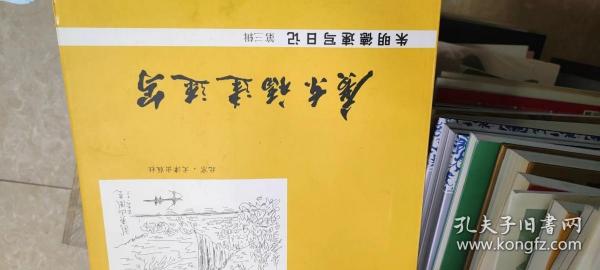 朱明德速写日记 第三辑
广东福建速写
北京·文津出版社
孔夫子旧书网
www.kongfz.com